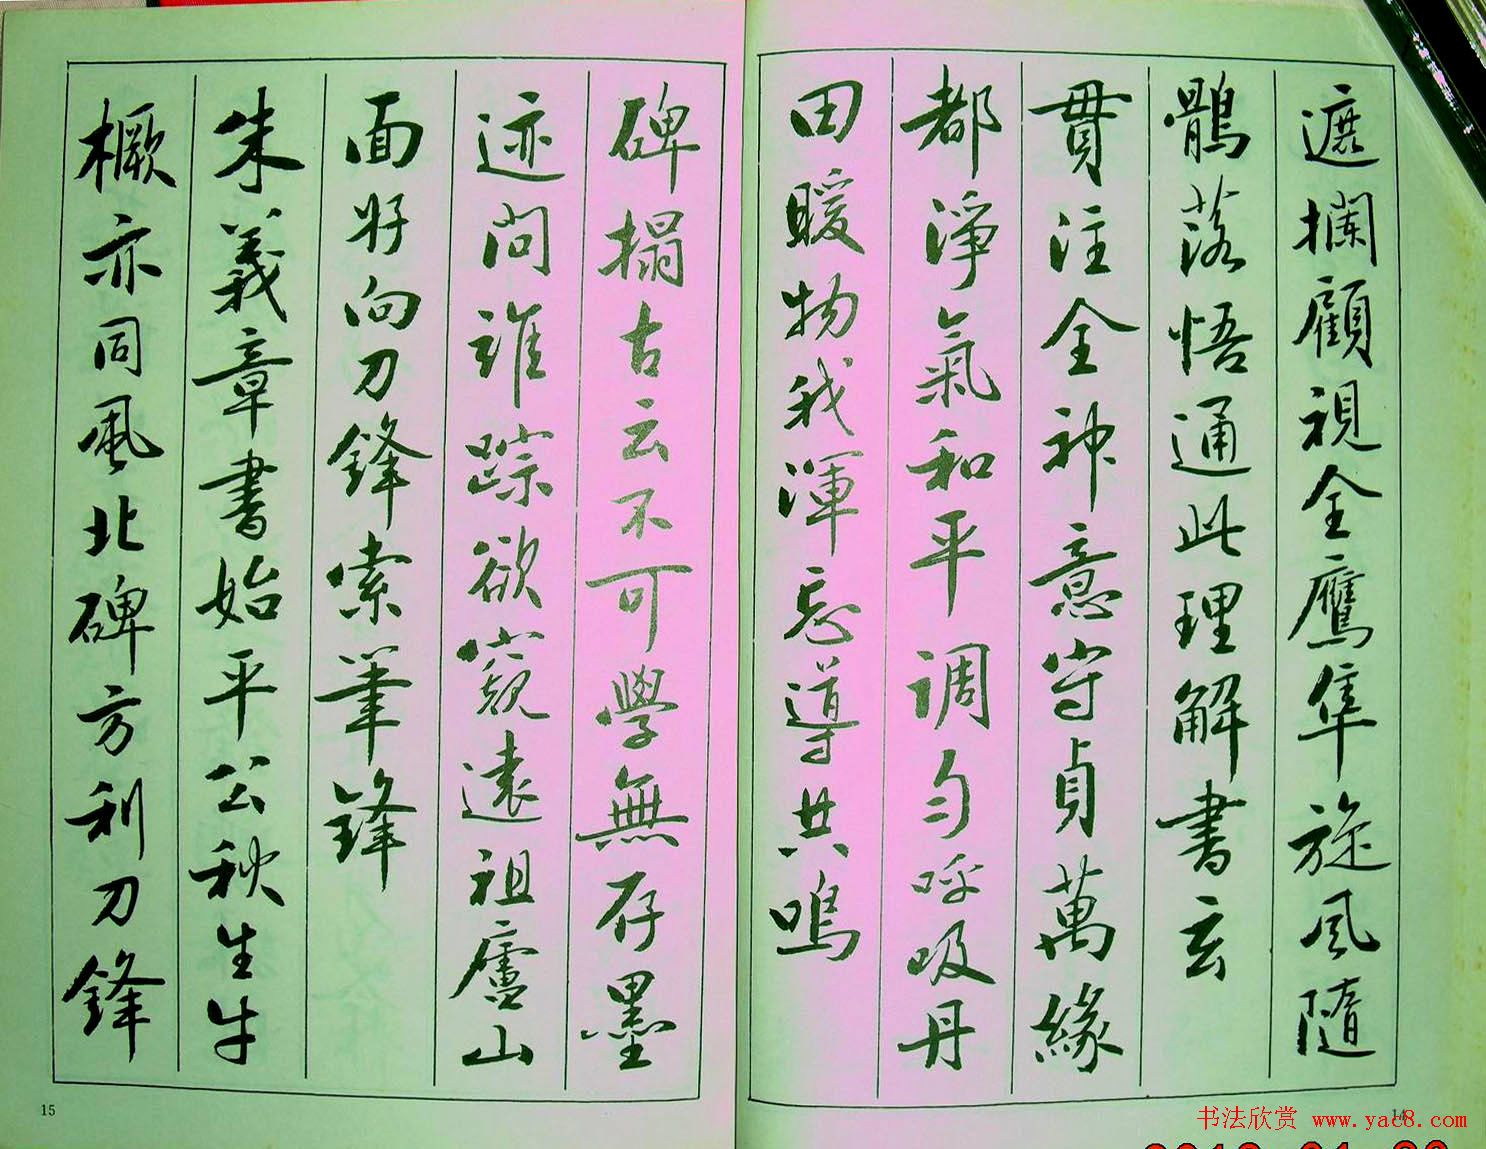 遮攔顧視全鷹隼旋風隨
鶻落悟通此理解書玄
貫注全神意守貞萬緣
都淨氣和平調勻呼吸丹
田暖物我渾忘導共鳴
14
碑搨古云不可學無存墨
迹問誰踪欲窺遠祖廬山
面好向刀鋒索筆鋒
朱義章書始平公秋生牛
橛亦同風北碑方利刀鋒
15
书法欣赏 www.yac8.com